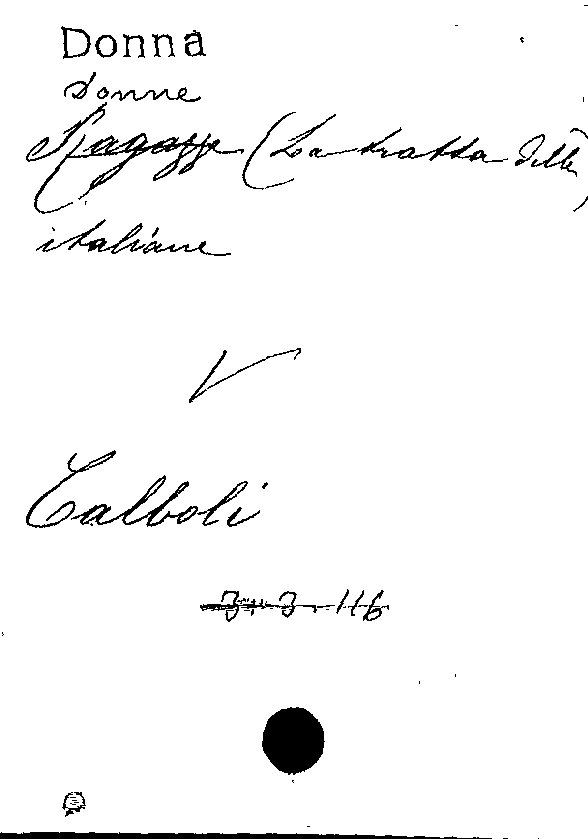 Donna
Donne
Ragazze (La tratta delle
italiane
V
Calboli
3.3.116